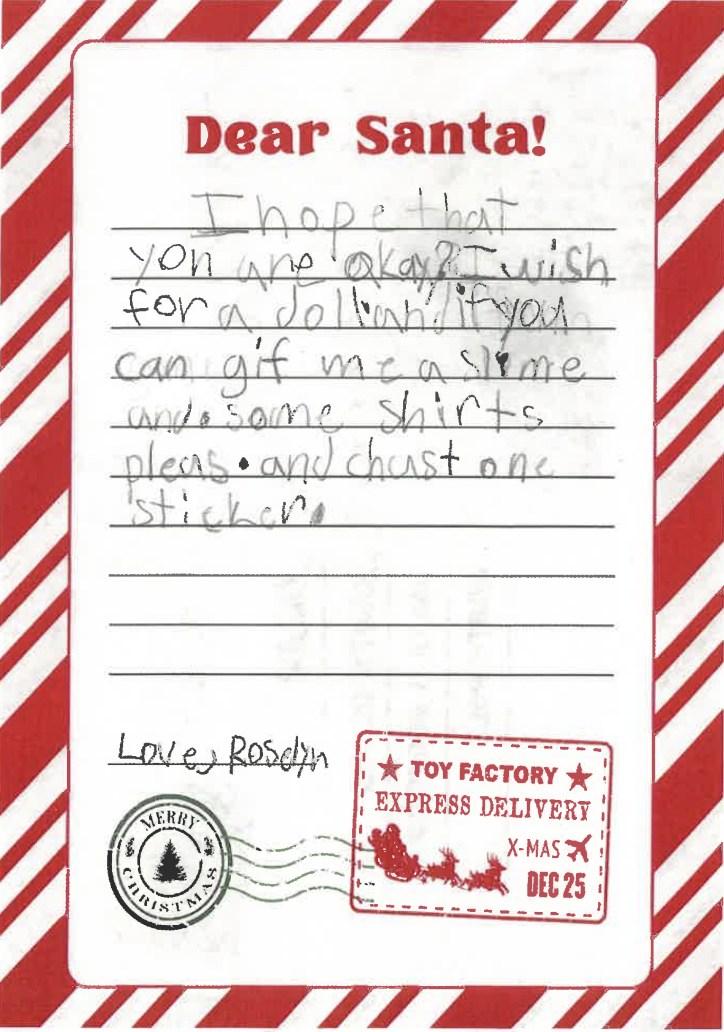 Dear Santa!
I hope that
you are okay? I wish
for a doll and if you
can gif me a slime
and. some shirts
pleas. and chust one
sticker.
Love, Roselyn
MERRY
CHRISTMAS
TOY FACTORY
EXPRESS DELIVERY
X-MAS
DEC 25